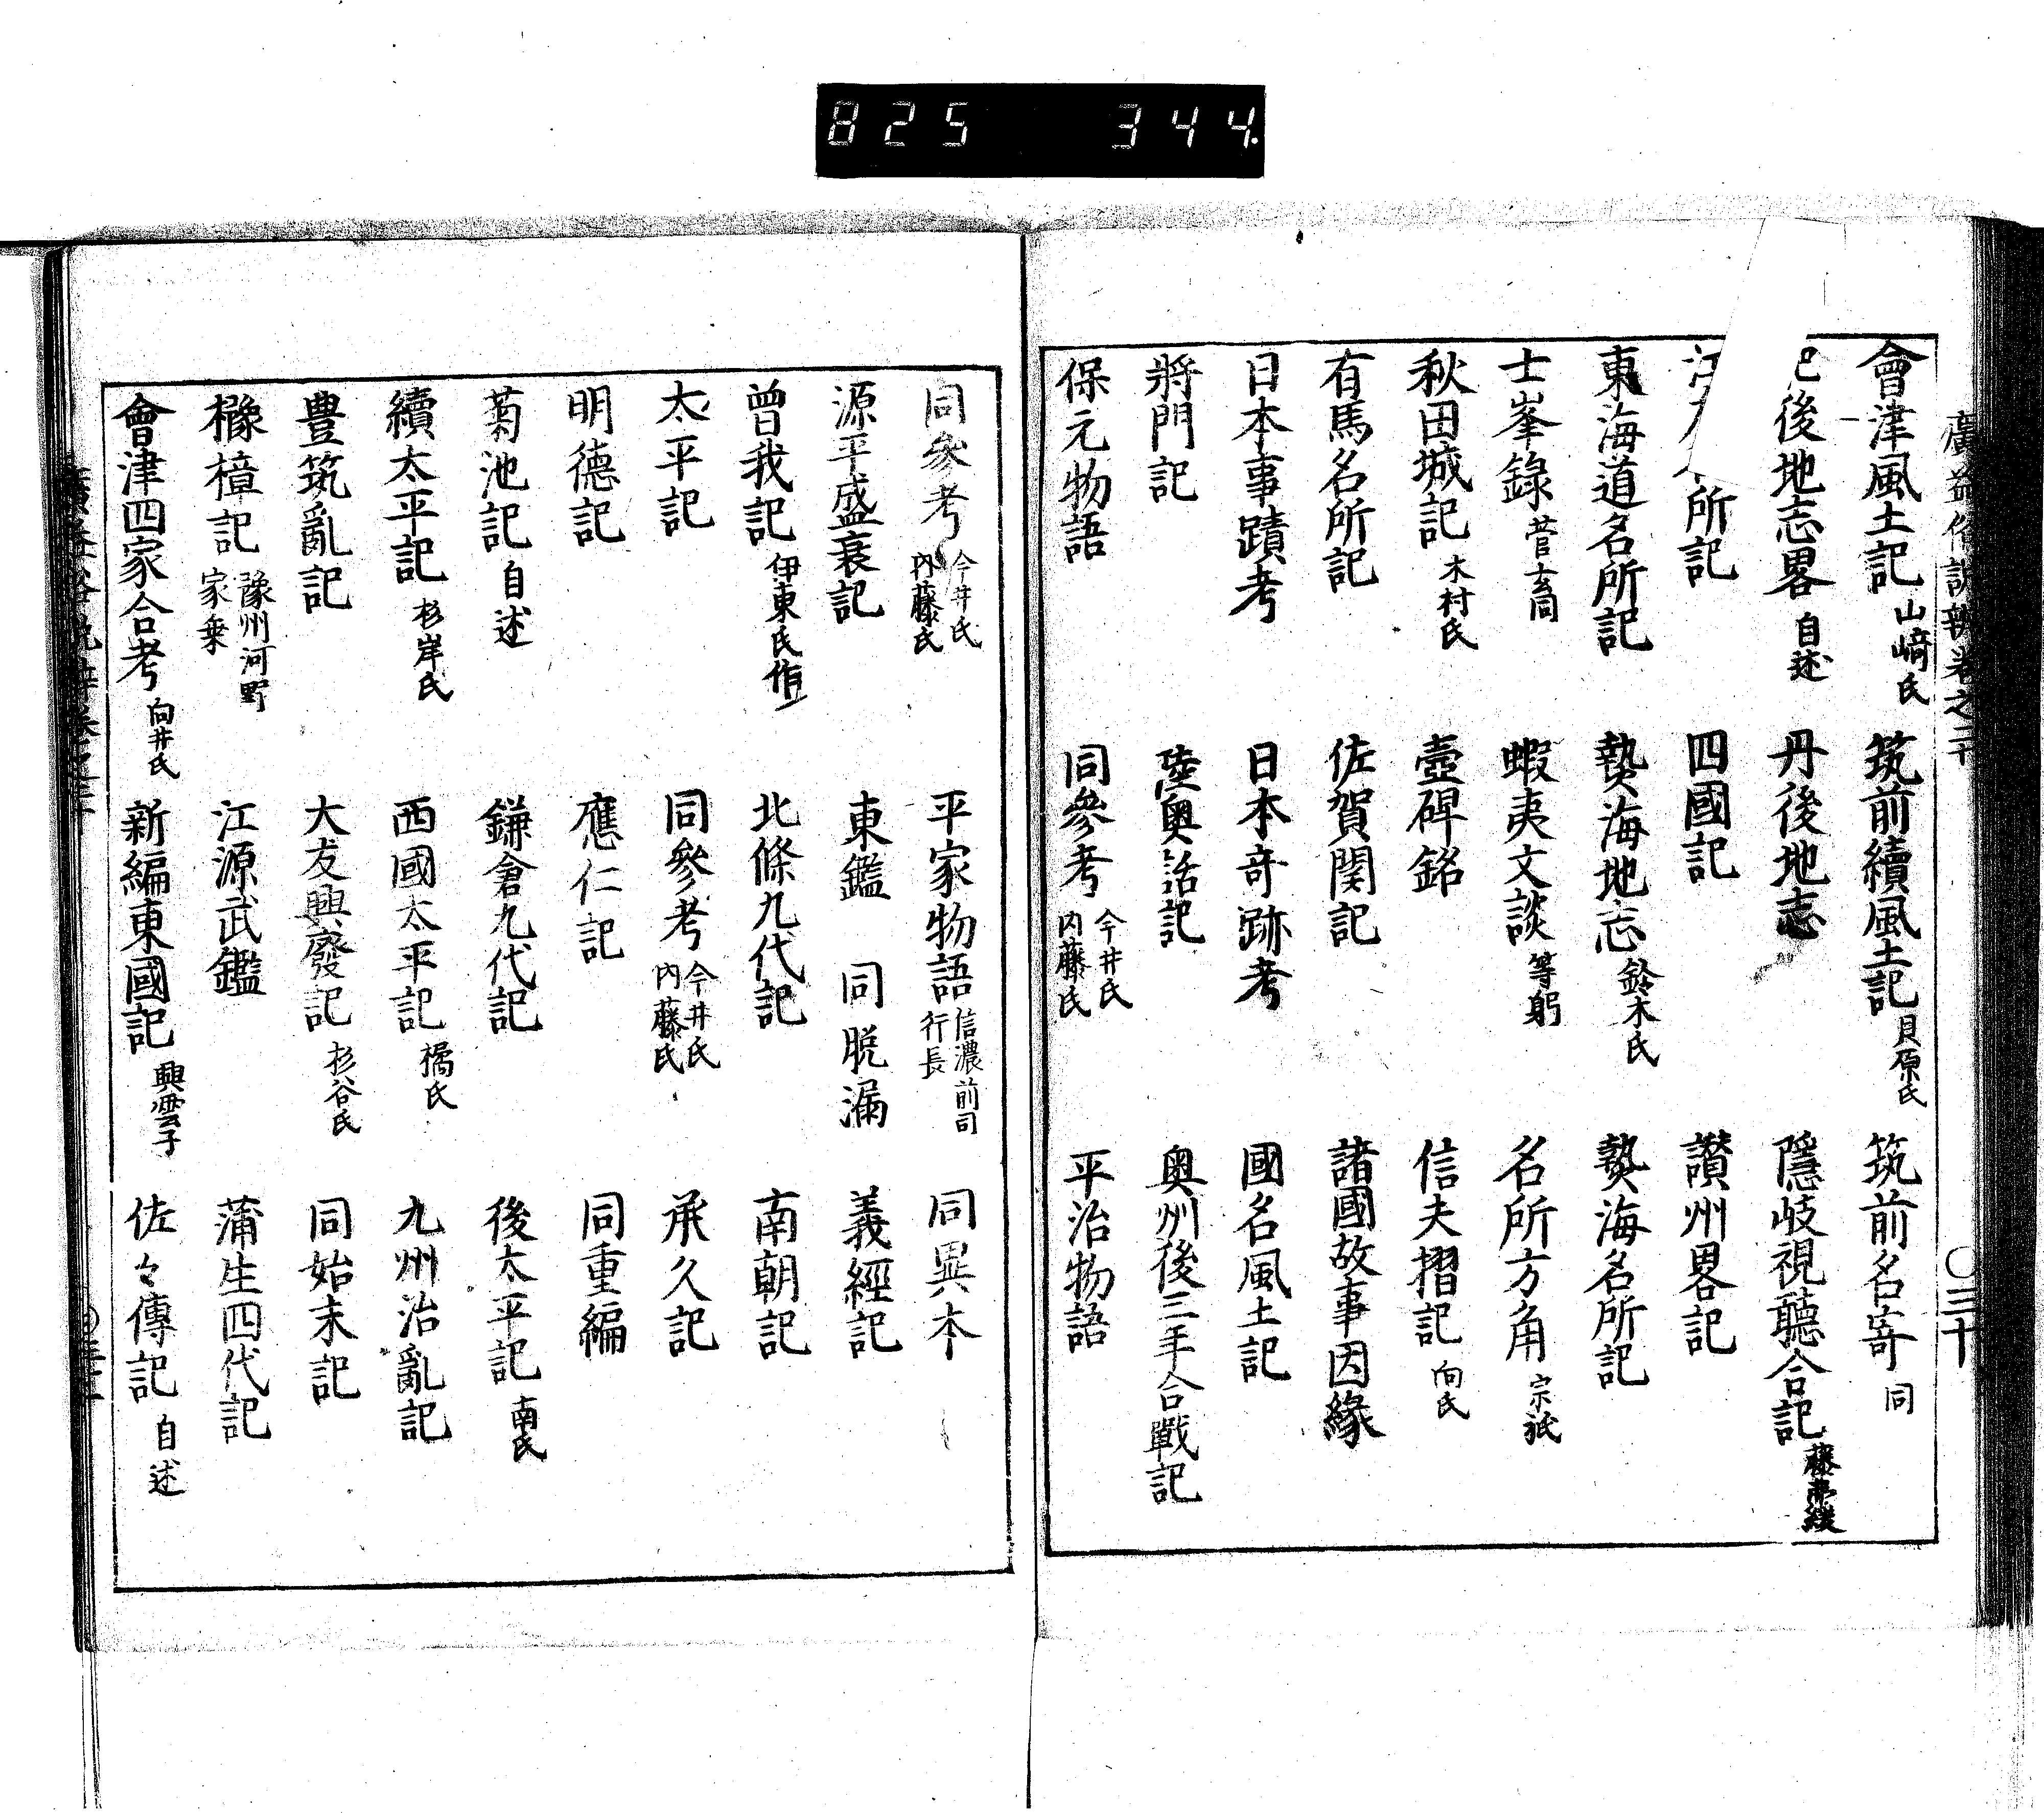 825 344.
廣益俗説辨卷之二十 ○三十
會津風土記 山﨑氏 筑前續風土記 貝原氏 筑前名寄 同
後地志畧 自述 丹後地志 隱岐視聽合記 藤弗緩
所記 四國記 讃州畧記
東海道名所記 㷀海地志 鈴木氏 㷀海名所記
士峯錄 菅玄同 蝦夷文談 等躬 名所方角 宗祇
秋田城記 木村氏 壺碑銘 信夫摺記 向氏
有馬名所記 佐賀関記 諸國故事因緣
日本事蹟考 日本奇跡考 國名風土記
將門記 陸奥話記 奥州後三年合戰記
保元物語 同參考 今井氏 内藤氏 平治物語
同參考 今井氏 内藤氏 平家物語 信濃前司 行長 同異本
源平盛衰記 東鑑 同脱漏 義經記
曽我記 伊東氏作 北條九代記 南朝記
太平記 同參考 今井氏 内藤氏 承久記
明德記 應仁記 同重編
菊池記 自述 鎌倉九代記 後太平記 南氏
續太平記 杉岸氏 西國太平記 橘氏 九州治亂記
豊筑亂記 大友興廢記 杉谷氏 同始末記
橡樟記 豫州河野 家乗 江源武鑑 蒲生四代記
會津四家合考 向井氏 新編東國記 興雲子 佐々傳記 自述